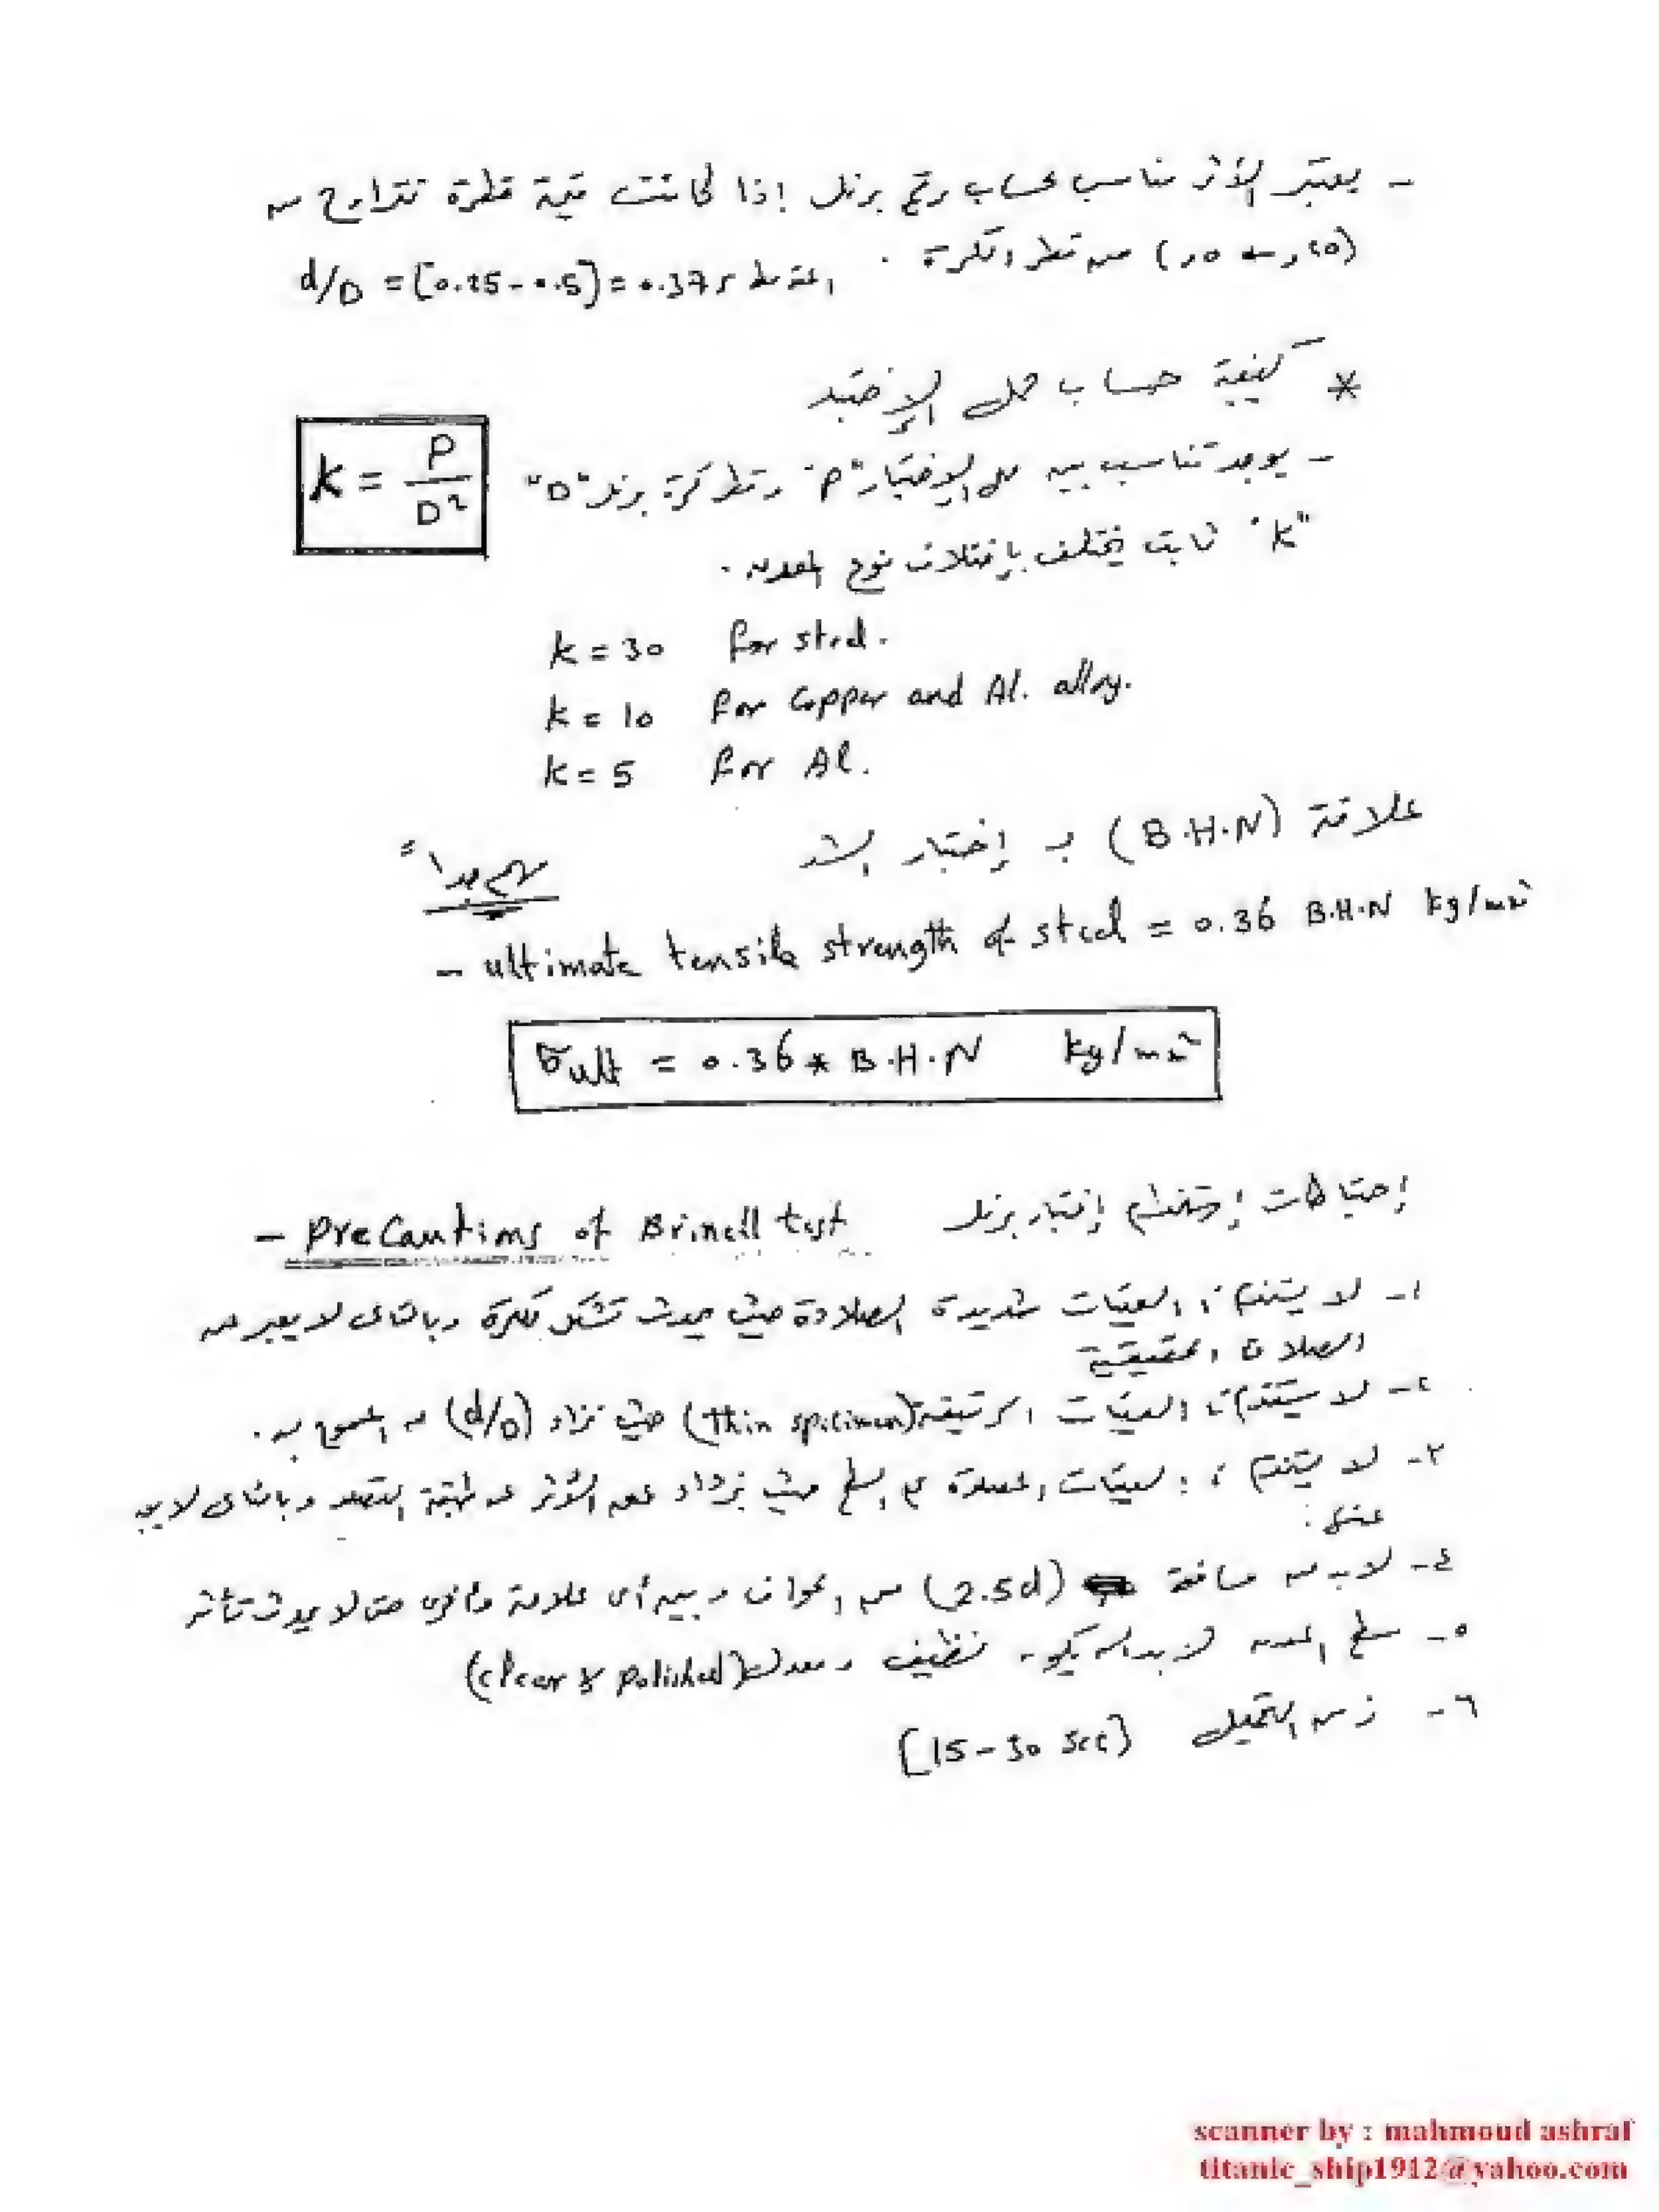 - يعتبر الأثر مناسب لحساب رقم برنل إذا كانت قيمة قطرة تتراوح من
(٢٥, ← ٥,) من قطر الكرة . المتوسط d/D = [0.25 - 0.5] = 0.375
* كيفية حساب حمل الإختبار
- يوجد تناسب بين حمل الإختبار "P" وقطر كرة برنل "D"
K = P / D²
"K" ثابت يختلف بإختلاف نوع المعدن .
K = 30 for steel.
K = 10 for Copper and Al. alloy.
K = 5 for Al.
علاقة (B.H.N) بـ إختبار الشد
مهم جداً
- ultimate tensile strength of steel = 0.36 B.H.N kg/mm²
σult = 0.36 * B.H.N kg/mm²
إحتياطات إستخدام إختبار برنل
- Precautions of Brinell test
١- لا يستخدم في العينات شديدة الصلادة حيث يحدث تشكل للكرة وبالتالى لا يعبر عن
الصلادة الحقيقية
٢- لا يستخدم في العينات الرقيقة (thin specimen) حيث تزاد (d/D) عن المسموح به .
٣- لا يستخدم في العينات المصلدة السطح حيث يزداد عمق الأثر عن طبقة التصلد وبالتالى لا يعبر
عنها .
٤- لابد من مسافة (2.5d) من الحواف وبين أى علامة وأخرى حتى لا يحدث تأثر
٥- سطح المعدن لابد أن يكون نظيف ومعدل (clear & polished)
٦- زمن التحميل [15 - 30 sec]
scanner by : mahmoud ashraf
titanic_ship1912@yahoo.com